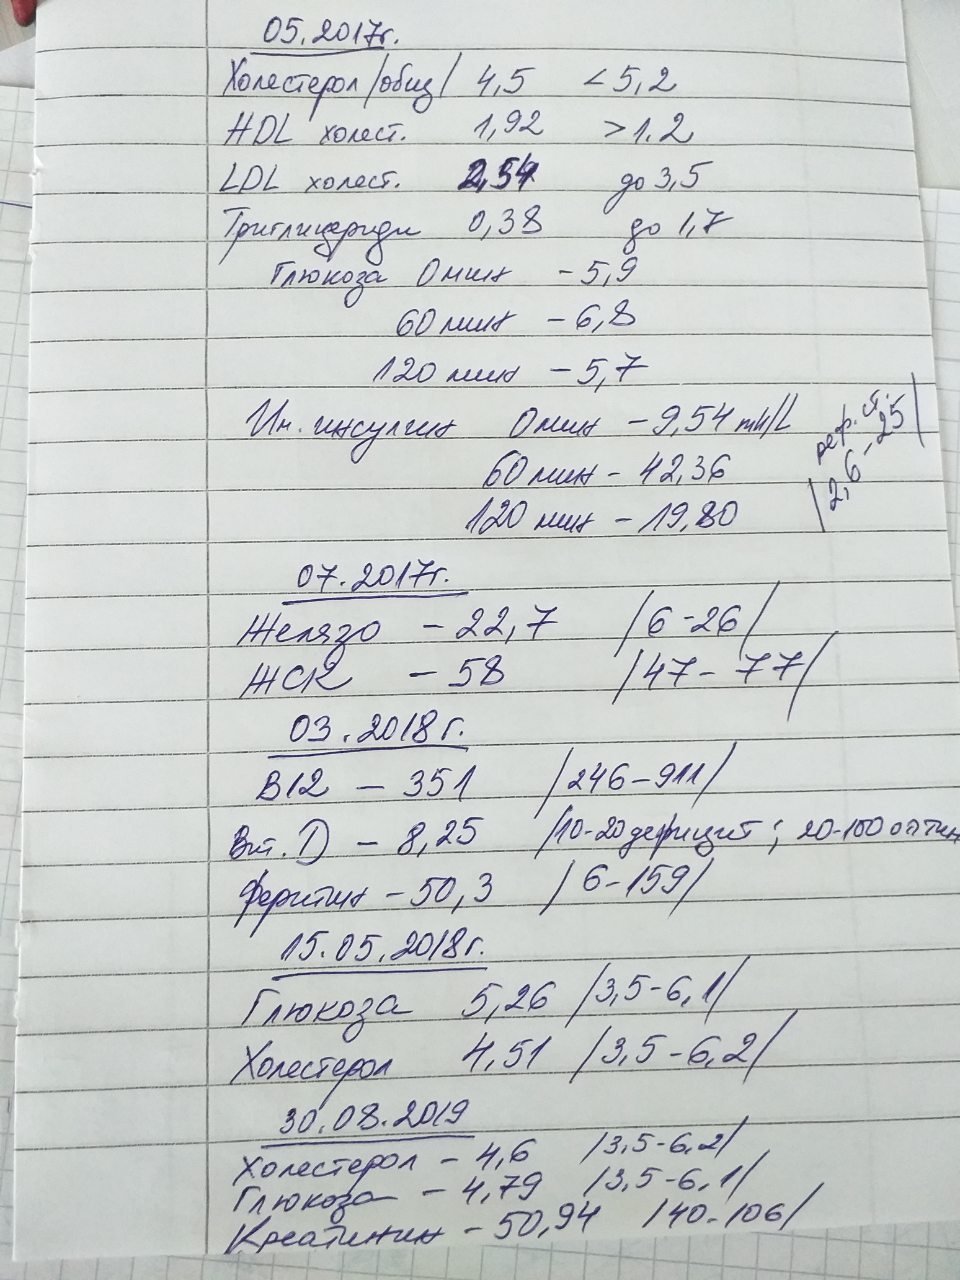 05.2017г.
Холестерол /общ/ 4,5 < 5,2
HDL холест. 1,92 > 1.2
LDL холест. 2,54 до 3,5
Триглицериди 0,38 до 1,7
Глюкоза 0 мин - 5,9
60 мин - 6,8
120 мин - 5,7
Им. инсулин 0 мин - 9,54 mU/L
реф. ст.
/2,6-25/
60 мин - 42,36
120 мин - 19,80
07.2017г.
Желязо - 22,7 /6-26/
ЖСК - 58 /47-77/
03.2018г.
В12 - 351 /246-911/
Вит. D - 8,25 /10-20 дефицит; 20-100 оптим
Феритин - 50,3 /6-159/
15.05.2018г.
Глюкоза 5,26 /3,5-6,1/
Холестерол 4,51 /3,5-6,2/
30.08.2019
Холестерол - 4,6 /3,5-6,2/
Глюкоза - 4,79 /3,5-6,1/
Креатинин - 50,94 /40-106/